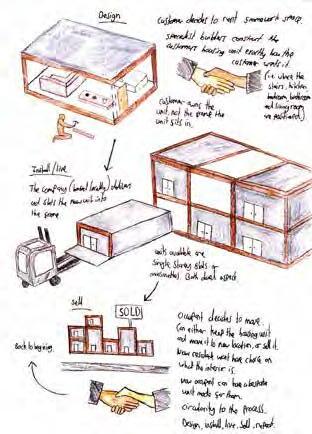 Design
customer decides to rent framework space.
specialist builders construct the
customers housing unit exactly how the
customer wants it.
(i.e where the
stairs, kitchen
bathroom, bedroom
and living room
are positioned).
customer owns the
unit, not the frame the
unit sits in.
Install/live
The company (based locally) delivers
and slots the new unit into
the frame
units available are
single storey slots or
maisonettes. Both dual aspect
sell
SOLD
occupant decides to move.
Can either keep the housing unit
and move it to new location, or sell it.
New occupant wont have choice on
what the interior is.
new occupant can have a bespoke
unit made for them.
circularity to the process.
Design, install, live. Sell, repeat.
Back to beginning.